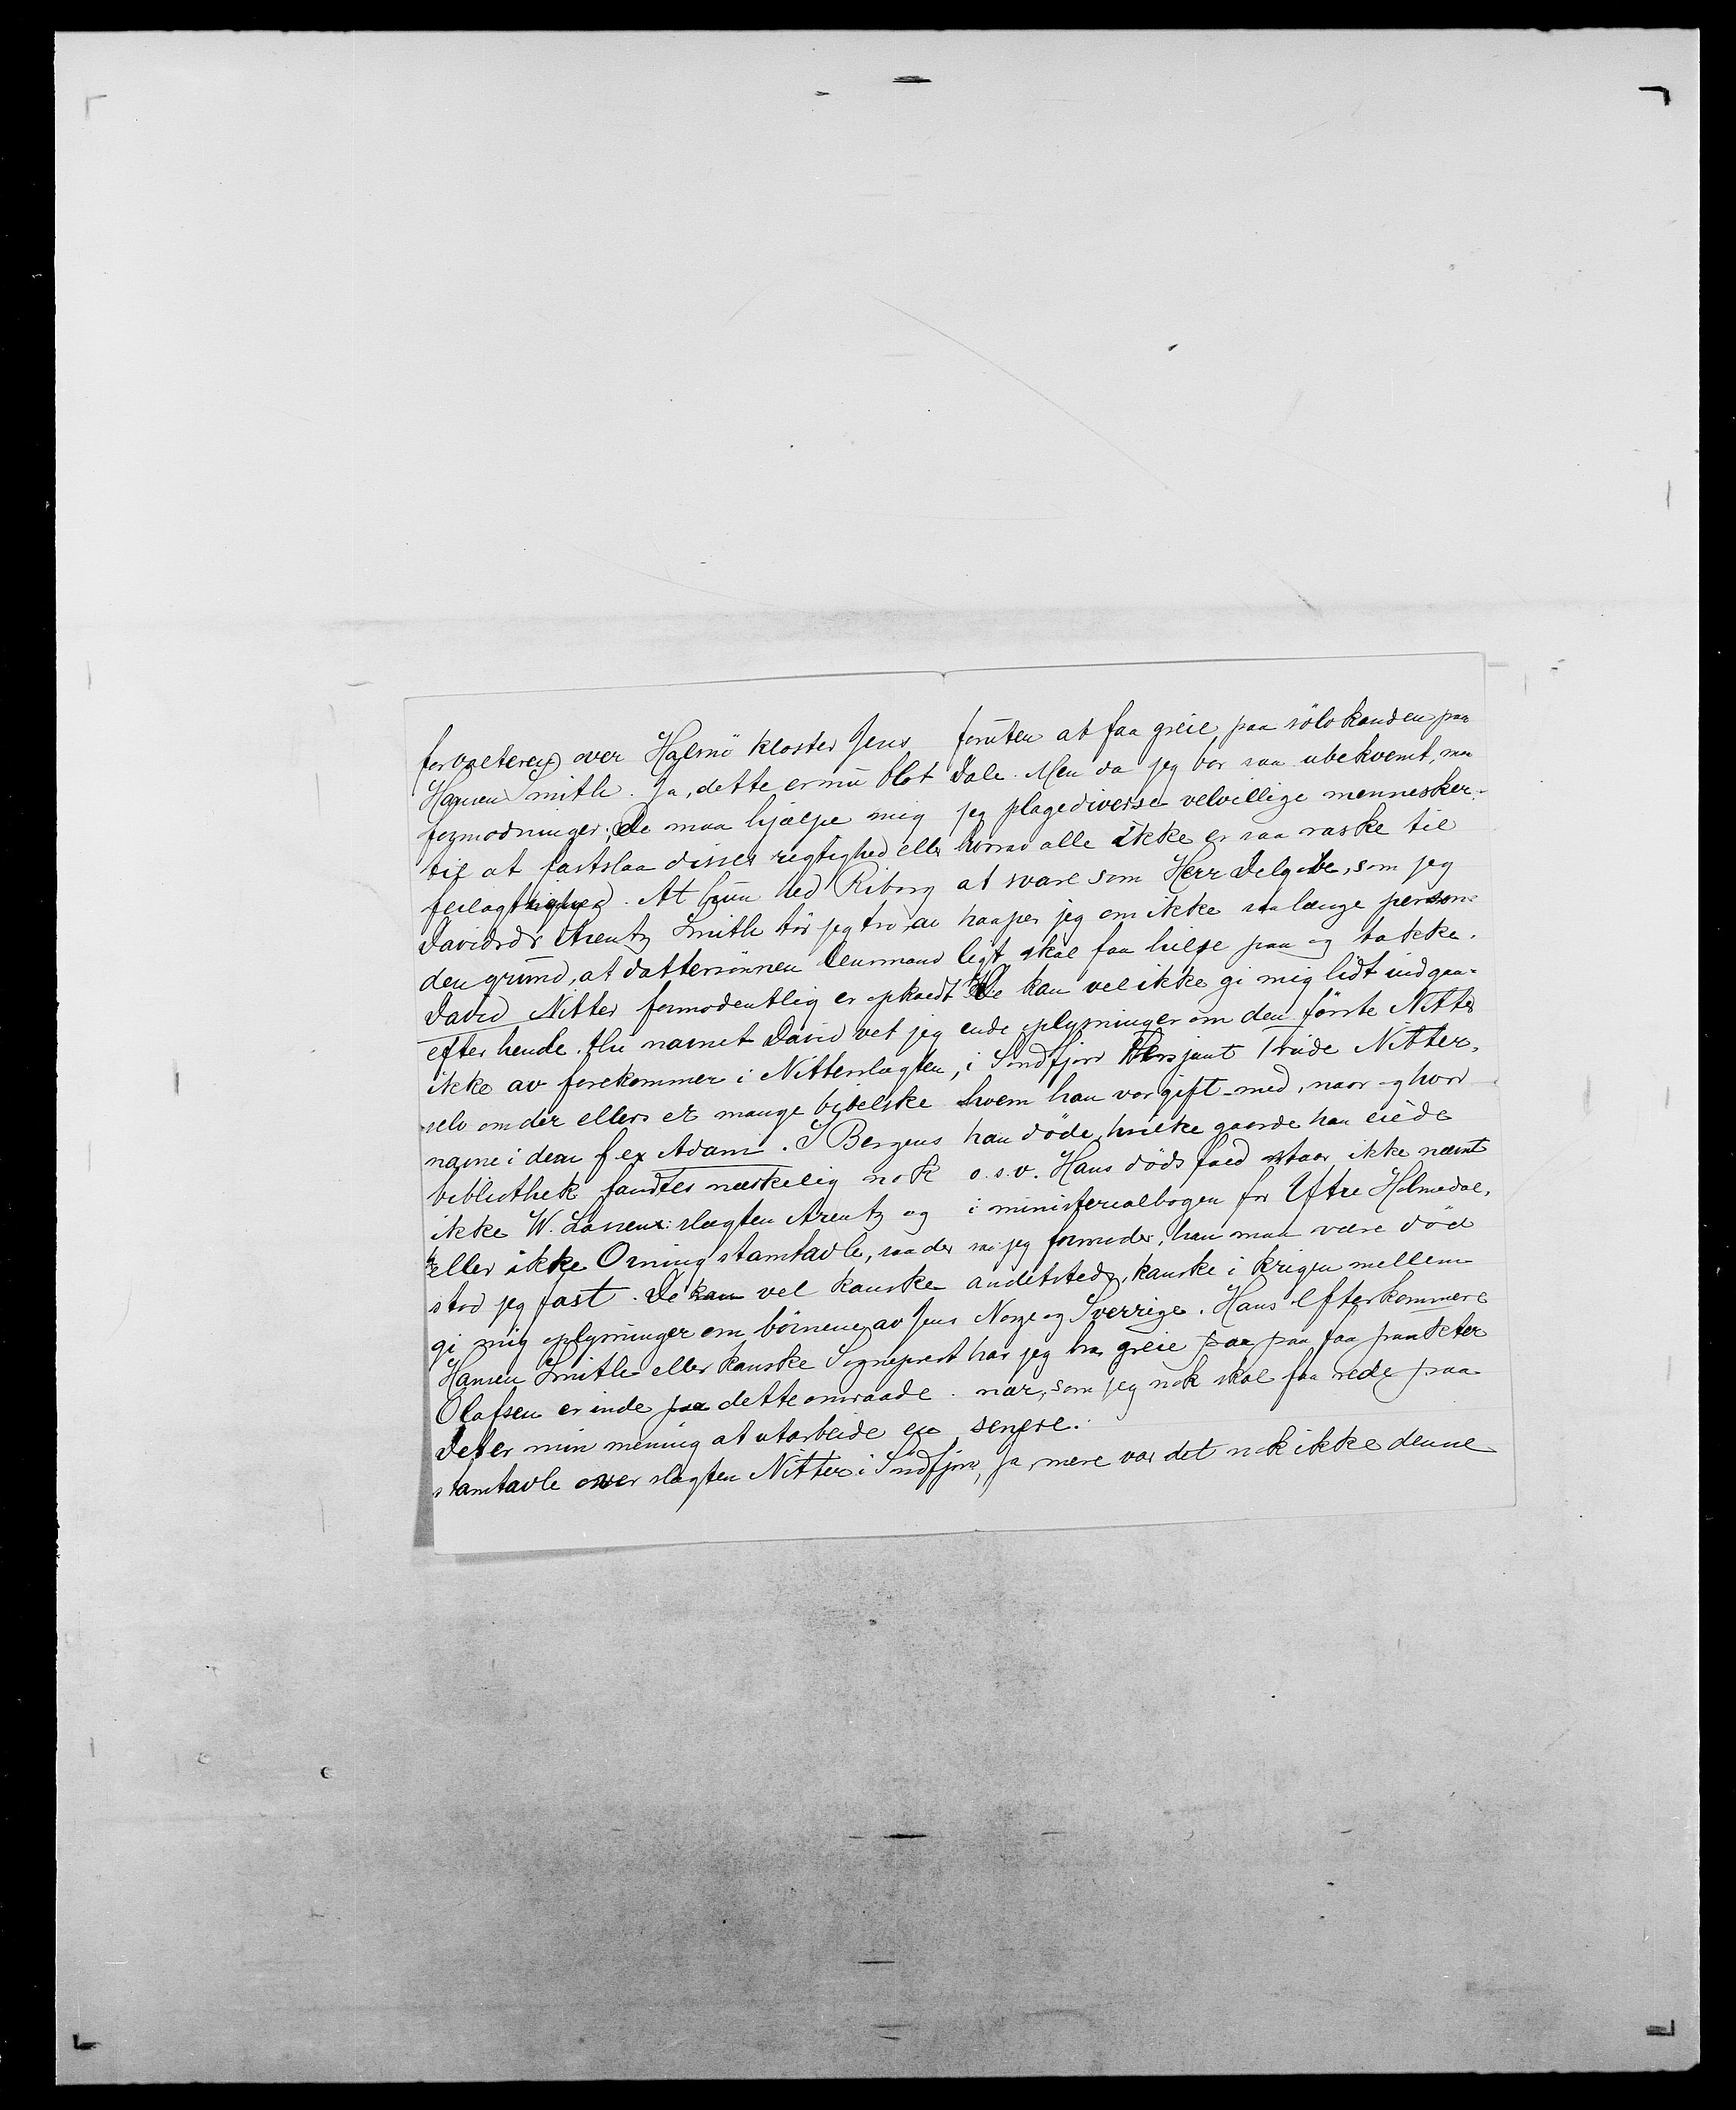 forvalteren over Halsnö kloster Jens
Hansen Smith. Ja, dette er nu blot
formodninger; De maa hjælpe mig
til at fastslaa disses rigtighed eller
feilagtighed. At hun hed Riborg
Davidsdr Arentz Smith tör jeg tro, av
den grund, at dattersönnen lensmand
David Nitter formodentlig er opkaldt
efter hende. Thi navnet David vet jeg
ikke av forekommer i Nitterslægten,
selv om der ellers er mange bibelske
navne i den f. ex Adam. I Bergens
bibliothek fandtes næskelig nok
ikke W. Lassens: slægten Arentz og
eller ikke Orning stamtavle, saa der
stod jeg fast. De kan vel kanske
gi mig oplysninger om börnene av Jens
Hansen Smith eller kanske Sogneprest
Olafsen er inde paa dette omraade.
Det er min mening at utarbeide en
stamtavle over slægten Nitter i Söndfjord,
foruten at faa greie paa sölvkanden paa
Dale. Men da jeg bor saa ubekvemt, maa
jeg plage diverse velvillige mennesker,
hvorav alle ikke er saa raske til
at svare som Herr Delgobe, som jeg
haaper jeg om ikke saa længe person-
ligt skal faa hilse paa og takke.
De kan vel ikke gi mig lidt indgaa-
ende oplysninger om den förste Nitter
i Söndfjord Thersjant Trude Nitter,
hvem han var gift med, naar og hvor
han döde, hvilke gaarde han eiede
o.s.v. Hans dödsfald staar ikke nævnt
i ministerialbogen for Yttre Holmedal,
saa jeg formoder, han maa være död
andetsteds, kanske i krigen mellem
Norge og Sverrige. Hans Efterkommere
har jeg bra greie paa paa faa punkter
nær, som jeg nok skal faa rede paa
senere.
Ja, mere var det nok ikke denne